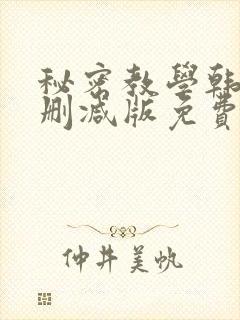 秘密教學韩
删减版免費
仲井美帆